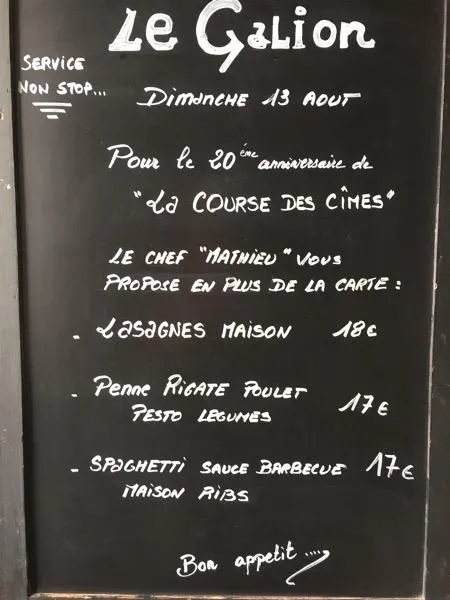 Le Galion
SERVICE
NON STOP...
Dimanche 13 AOUT
Pour le 20ème anniversaire de
"La COURSE DES CÎMES"
LE CHEF "MATHIEU" VOUS
PROPOSE EN PLUS DE LA CARTE :
- LASAGNES MAISON 18€
- Penne RIGATE POULET
PESTO LEGUMES 17€
- SPAGHETTI SAUCE BARBECUE 17€
MAISON RIBS
Bon appetit ....